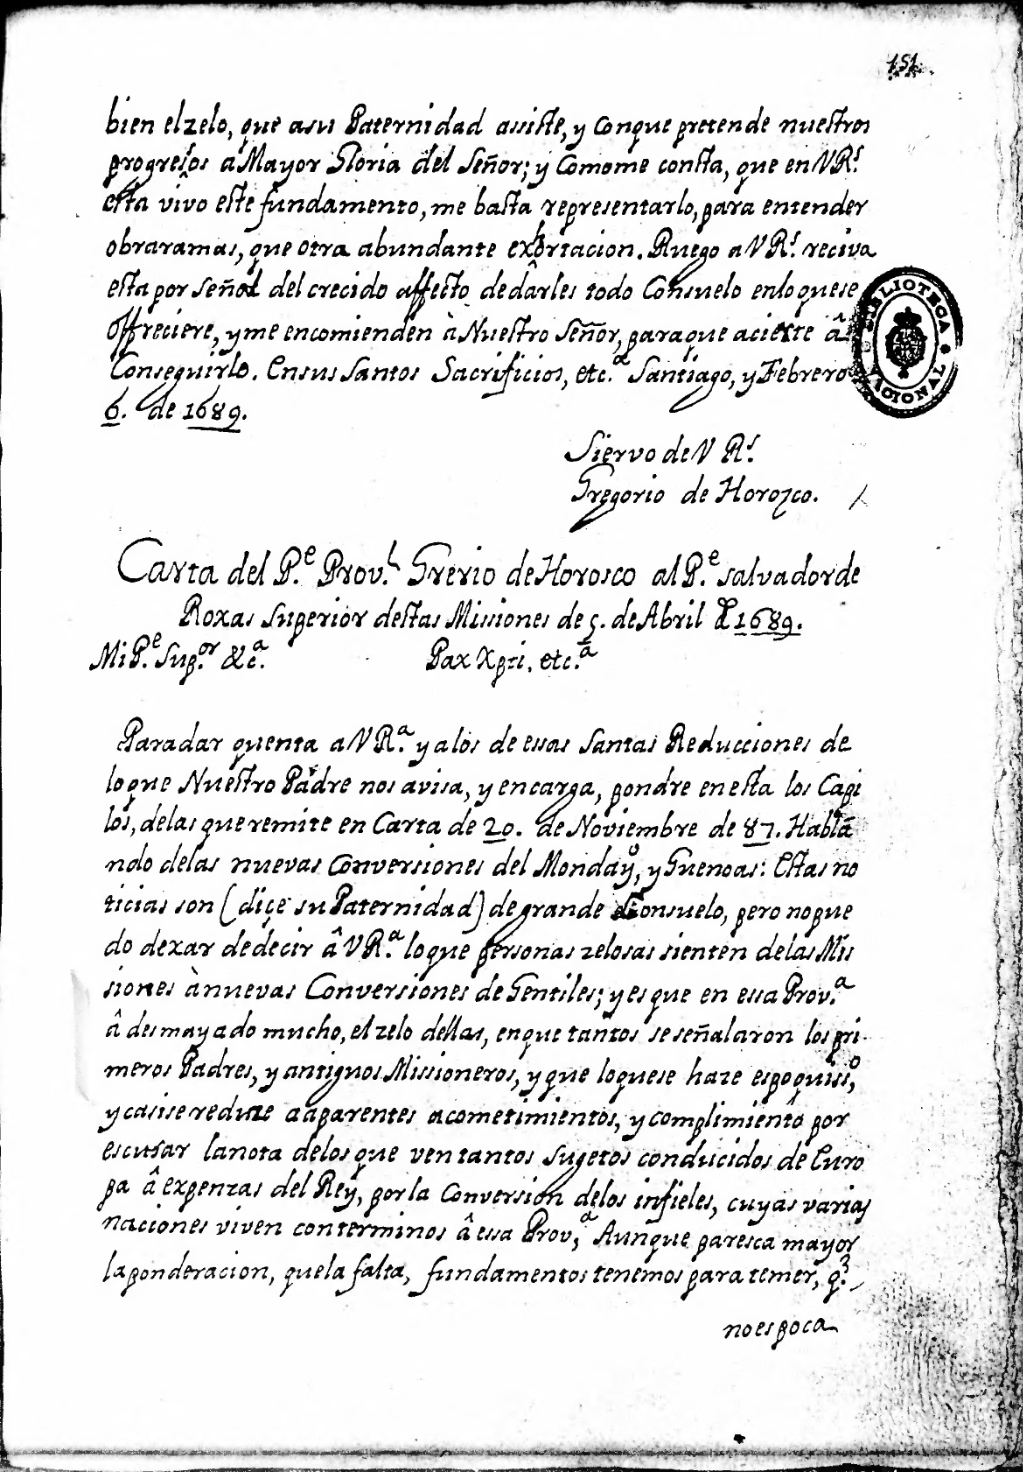 151.
bien elzelo, que asu Paternidad assiste, y Conque pretende nuestros
progressos a Mayor Gloria del Señor; y Comome consta, que en VRˢ
esta vivo este fundamento, me basta representarlo, para entender
obraramas, que otra abundante exhortacion. Ruego a VRˢ. reciva
esta por señal del crecido affecto dedarles todo Consuelo enloquese
offreciere, y me encomienden à Nuestro Señor, paraque acierte â
Conseguirlo. Ensus Santos Sacrificios, etc.ᵃ Santiago, y Febrero
6. de 1689.
BIBLIOTECA NACIONAL
Siervo de V Rˢ.
Gregorio de Horozco.
Carta del P.ᵉ Prov.ˡ Grerio de Horosco al P.ᵉ salvador de
Roxas Superior destas Missiones de 5. de Abril d 1689.
Mi P.ᵉ Sup.ᵒʳ &c.ᵃ Pax Xpti. etc.ᵃ
Paradar quenta a V R.ᵃ y alos de essas Santas Reducciones de
loque Nuestro Padre nos avisa, y encarga, pondre en esta los Capi
los, delas que remite en Carta de 20. de Noviembre de 87. Habla
ndo delas nuevas Conversiones del Monday, y Guenoas: Estas no
ticias son (diçe su Paternidad) de grande Consuelo, pero nopue
do dexar dedecir â V R.ᵃ loque personas zelosas sienten delas Mis
siones à nuevas Conversiones de Gentiles; y es que en essa Prov.ᵃ
â desmayado mucho, el zelo dellas, enque tantos se señalaron los pri-
meros Padres, y antiguos Missioneros, y que loquese haze espoquissᵒ,
y casise reduze aaparentes acometimientos, y complimiento por
escusar lanota delos que ven tantos sugetos conducidos de Euro
pa â expenzas del Rey, por la Conversion delos infieles, cuyas varias
naciones viven conterminos â essa Prov,ᵃ Aunque paresca mayor
laponderacion, quela falta, fundamentos tenemos para temer, q.ᵉ
no es poca